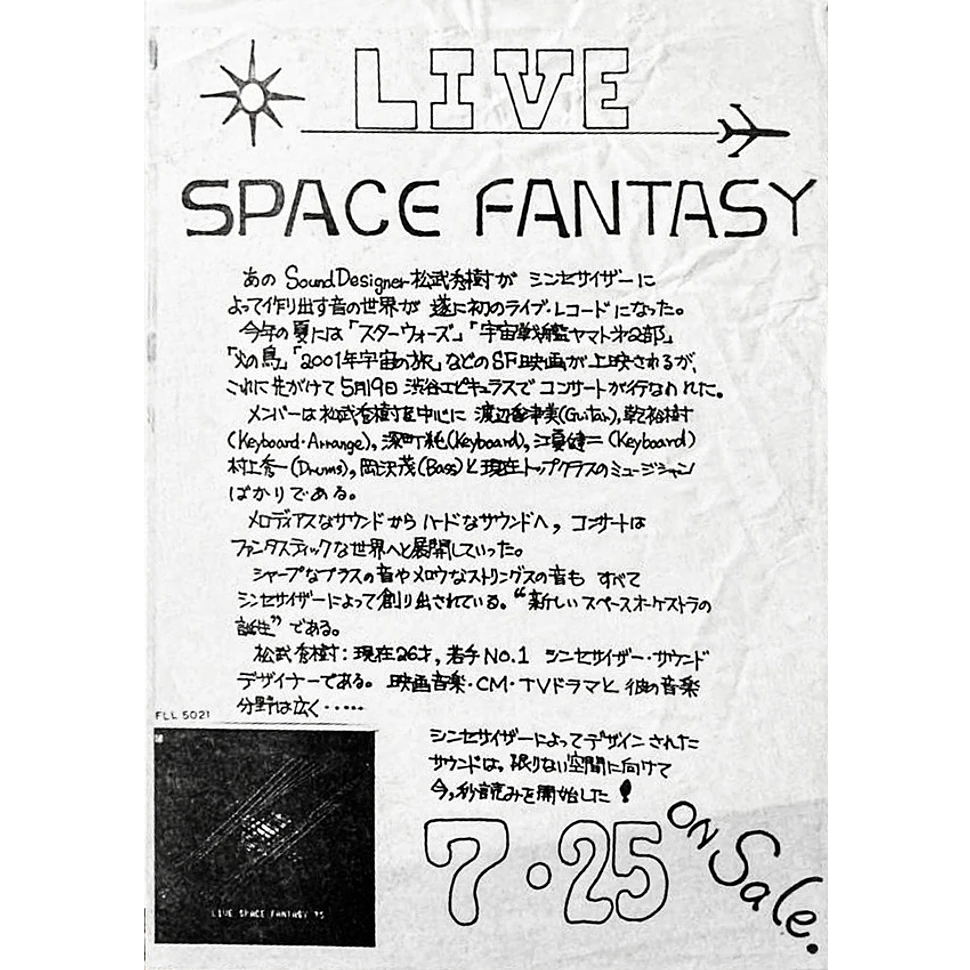 LIVE
SPACE FANTASY
あの Sound Designer 松武秀樹が シンセサイザーに
よって作り出す音の世界が 遂に初のライブ・レコードになった。
今年の夏には「スターウォーズ」「宇宙戦艦ヤマト第2部」
「火の鳥」「2001年宇宙の旅」などのSF映画が上映されるが、
これに先がけて5月19日 渋谷エピキュラスで コンサートが行なわれた。
メンバーは松武秀樹を中心に 渡辺香津美(Guitar), 乾裕樹
(Keyboard・Arrange), 深町純(Keyboard), 江夏健二(Keyboard)
村上秀一(Drums), 岡沢茂(Bass)と現在トップクラスのミュージシャン
ばかりである。
メロディアスなサウンドから ハードなサウンドへ, コンサートは
ファンタスティックな世界へと展開していった。
シャープなブラスの音やメロウなストリングスの音も すべて
シンセサイザーによって創り出されている。“新しいスペースオーケストラの
誕生”である。
松武秀樹：現在26才, 若手NO.1 シンセサイザー・サウンド
デザイナーである。映画音楽・CM・TVドラマと 彼の音楽
分野は広く・・・・・
FLL 5021
シンセサイザーによってデザインされた
サウンドは, 限りない空間に向けて
今, 秒読みを開始した!
LIVE SPACE FANTASY
7・25
ON Sale.